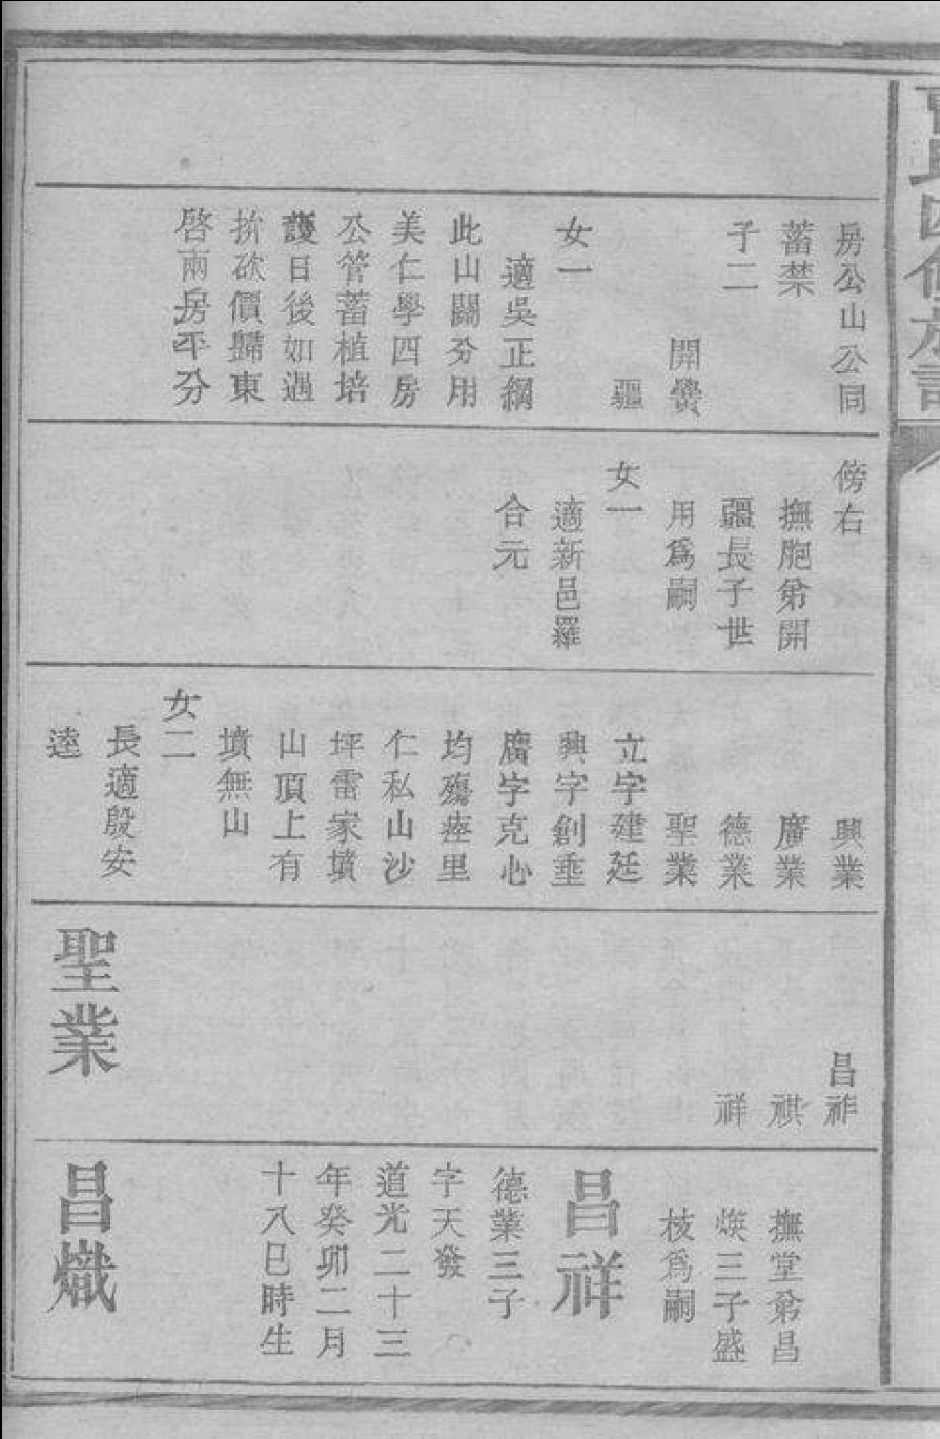 房公山公同
蓄禁
子二
開黌
疆
女一
適吳正綱
此山鬮分用
美仁學四房
公管蓄植培
護日後如遇
扴砍價歸東
啓兩房平分
傍右
撫胞弟開
疆長子世
用爲嗣
女一
適新邑羅
合元
興業
廣業
德業
聖業
立字建廷
興字創垂
廣字克心
均殤塟里
仁私山沙
坪雷家墳
山頂上有
墳無山
女二
長適殷安
逵
昌祚
祺
祥
聖業
撫堂弟昌
煐三子盛
枝爲嗣
昌祥
德業三子
字天發
道光二十三
年癸卯二月
十八巳時生
昌熾